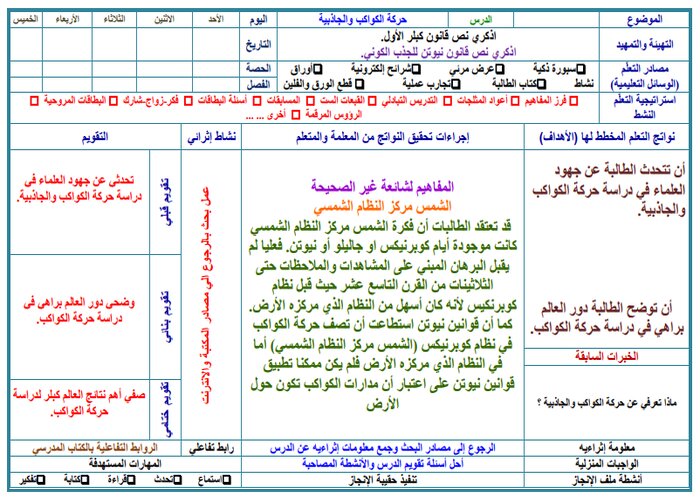 الموضوع حركة الكواكب والجاذبية الدرس اليوم الأحد الاثنين الثلاثاء الأربعاء الخميس
التهيئة والتمهيد
اذكري نص قانون كبلر الأول.
اذكري نص قانون نيوتن للجذب الكوني.
التاريخ
مصادر التعلم
(الوسائل التعليمية)
❑سبورة ذكية ❑عرض مرئي ❑شرائح إلكترونية ❑أوراق
نشاط ❑كتاب الطالبة ❑تجارب عملية ❑ قطع الورق والفلين
الحصة
الفصل
استراتيجية التعلم
النشط
□ فرز المفاهيم □ أعواد المثلجات □ التدريس التبادلي □ القبعات الست □ المسابقات □ أسئلة البطاقات □ فكر-زواج-شارك □ البطاقات المروحية
□ الرؤوس المرقمة □ أخرى ... ...
نواتج التعلم المخطط لها (الأهداف) إجراءات تحقيق النواتج من المعلمة والمتعلم نشاط إثرائي التقويم
أن تتحدث الطالبة عن جهود
العلماء في دراسة حركة الكواكب
والجاذبية.
أن توضح الطالبة دور العالم
براهي في دراسة حركة الكواكب.
الخبرات السابقة
ماذا تعرفي عن حركة الكواكب والجاذبية ؟
المفاهيم لشائعة غير الصحيحة
الشمس مركز النظام الشمسي
قد تعتقد الطالبات أن فكرة الشمس مركز النظام الشمسي
كانت موجودة أيام كوبرنيكس او جاليلو أو نيوتن. فعليا لم
يقبل البرهان المبني على المشاهدات والملاحظات حتى
الثلاثينات من القرن التاسع عشر حيث قبل نظام
كوبرنكيس لأنه كان أسهل من النظام الذي مركزه الأرض.
كما أن قوانين نيوتن استطاعت أن تصف حركة الكواكب
في نظام كوبرنيكس (الشمس مركز النظام الشمسي) أما
في النظام الذي مركزه الأرض فلم يكن ممكنا تطبيق
قوانين نيوتن على اعتبار أن مدارات الكواكب تكون حول
الأرض
عمل بحث بالرجوع الي مصادر المكتبة والانترنت
تقويم قبلي
تحدثى عن جهود العلماء في
دراسة حركة الكواكب والجاذبية.
تقويم بنائي
وضحى دور العالم براهي فى
دراسة حركة الكواكب.
تقويم ختامي
صفي أهم نتائج العالم كبلر لدراسة
حركة الكواكب.
معلومة إثراءيه الرجوع إلى مصادر البحث وجمع معلومات إثراءيه عن الدرس رابط تفاعلي الروابط التفاعلية بالكتاب المدرسي
الواجبات المنزلية أحل أسئلة تقويم الدرس والأنشطة المصاحبة المهارات المستهدفة
أنشطة ملف الإنجاز تنفيذ حقيبة الإنجاز ❑استماع ❑تحدث ❑قراءة ❑كتابة ❑تفكير